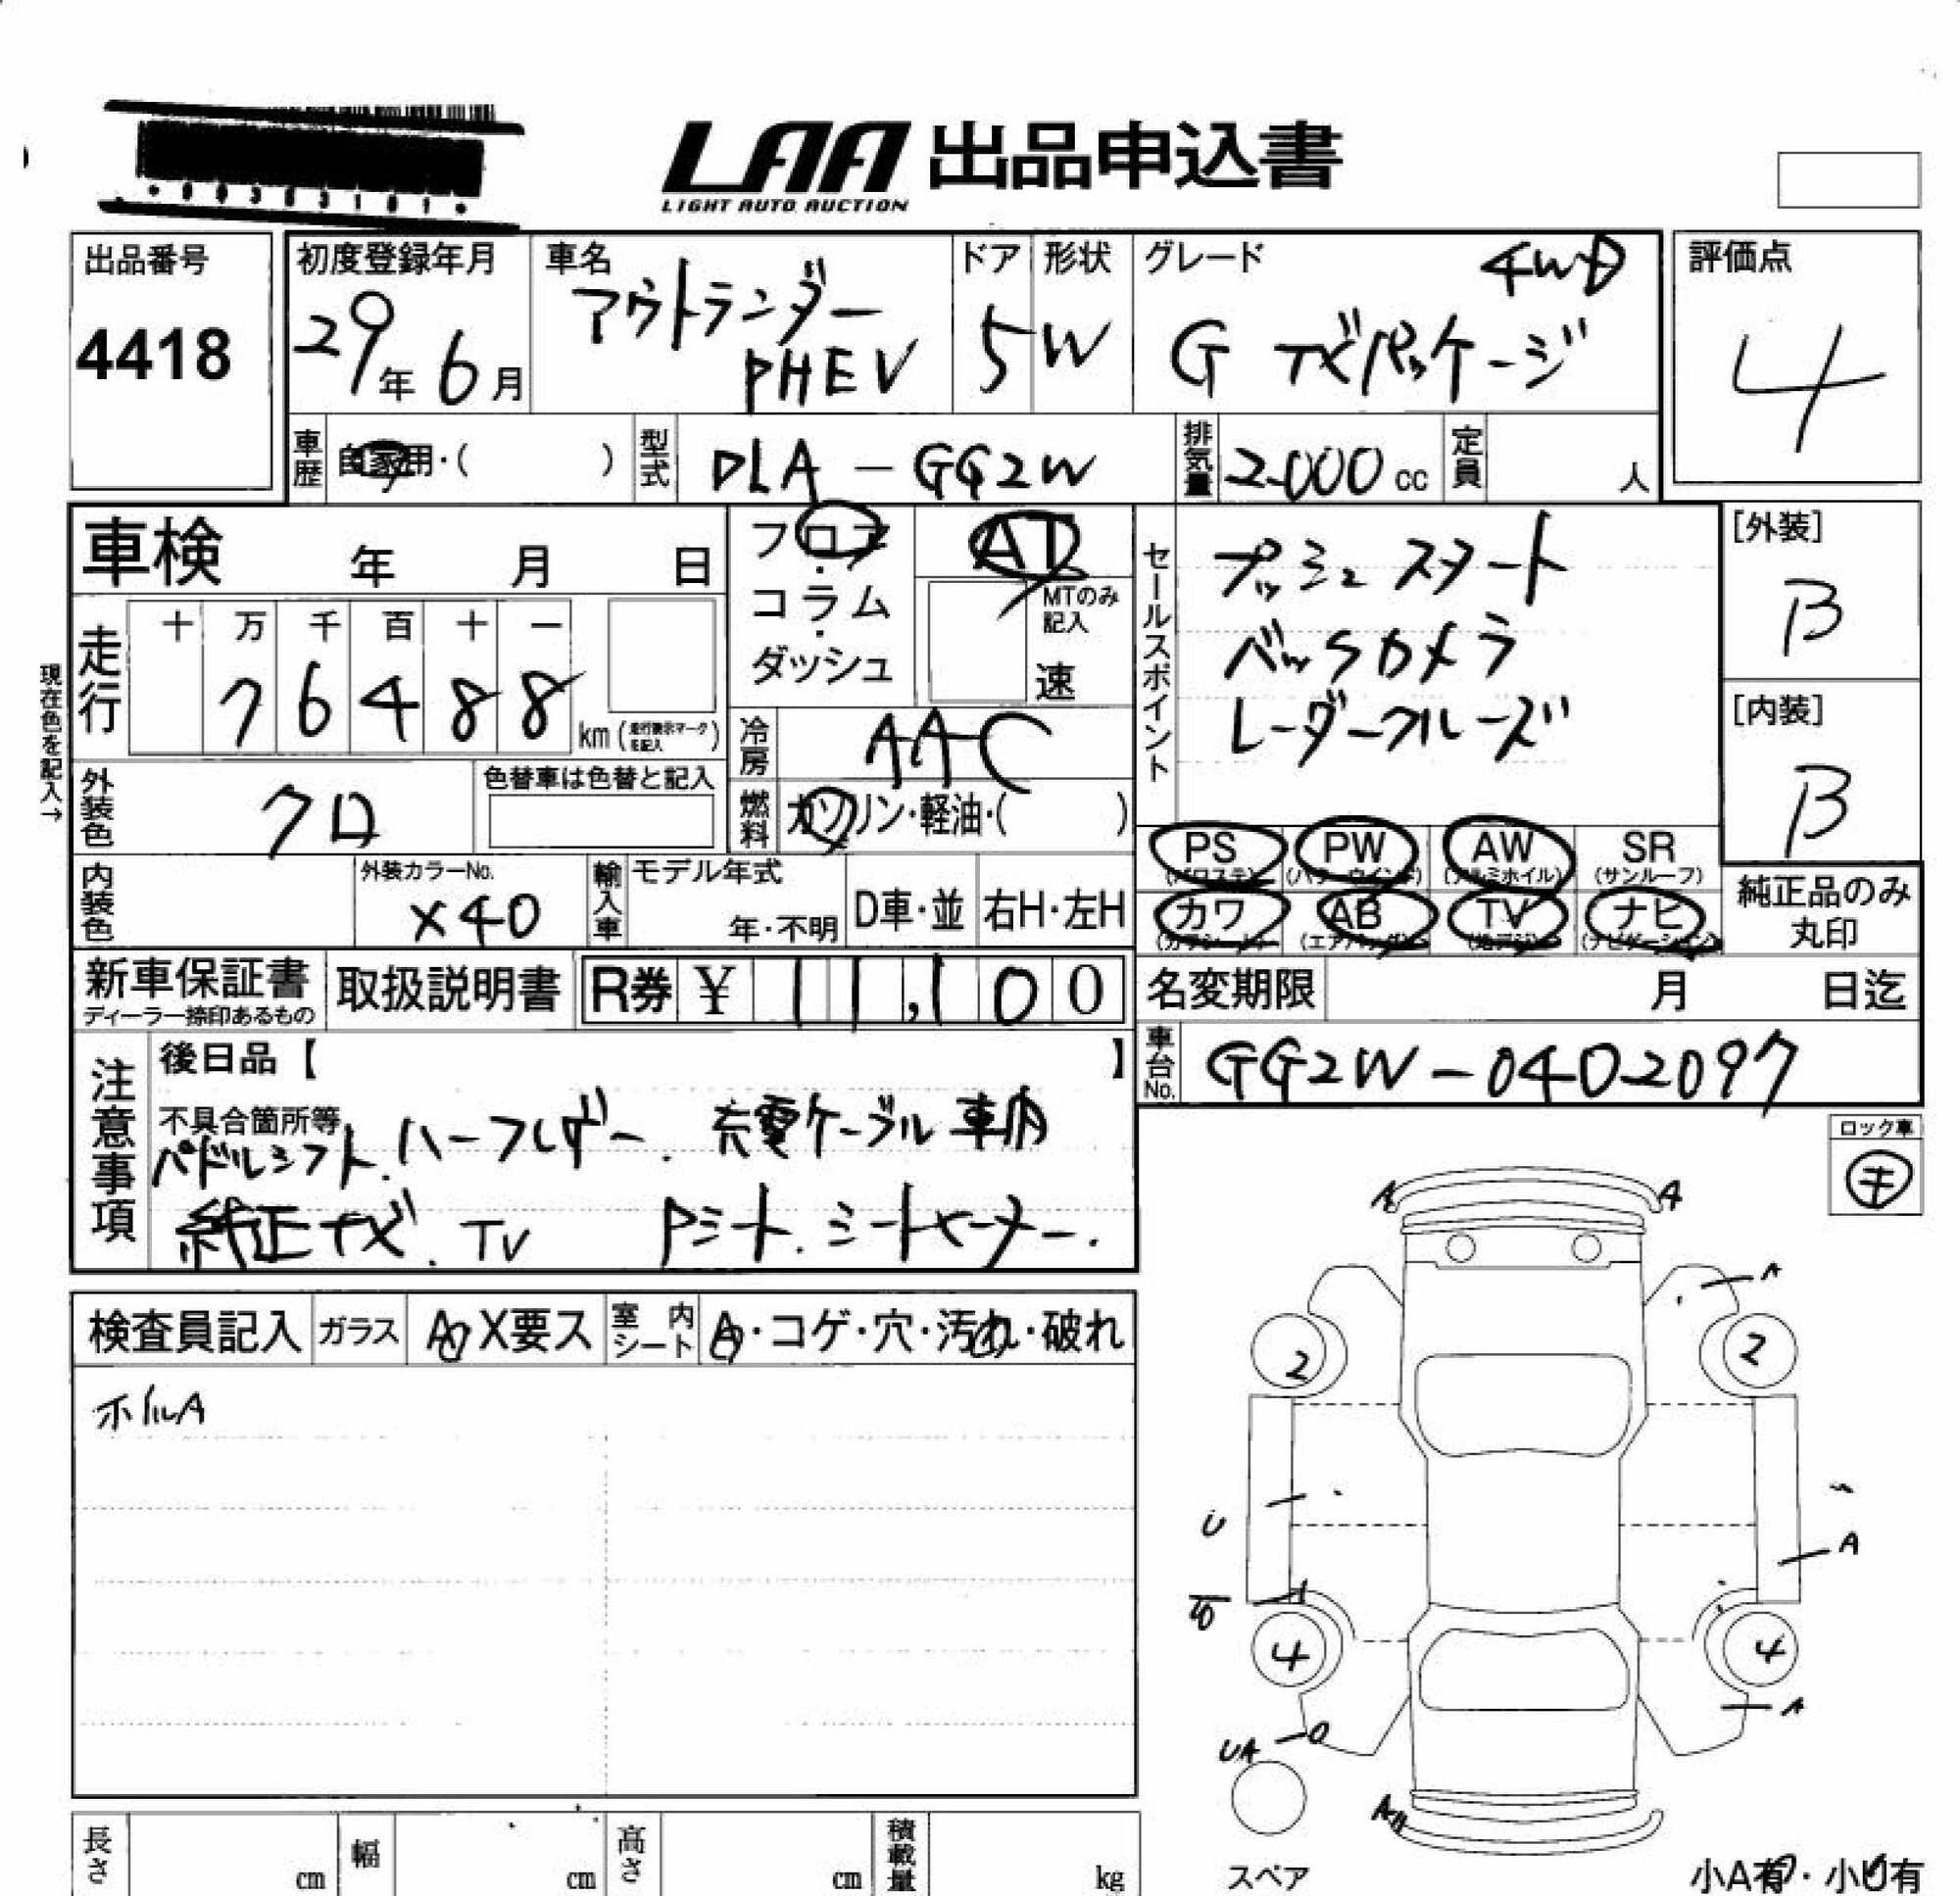 LAA 出品申込書
LIGHT AUTO AUCTION
出品番号
4418
初度登録年月
29年 6月
車名
アウトランダー
PHEV
ドア
5
形状
W
グレード
4WD
G ナビパッケージ
評価点
4
車歴 自家用・( )
型式 DLA-GG2W
排気量 2000 cc
定員 人
車検 年 月 日
現在色を記入→
走行
十 万 千 百 十 一
7 6 4 8 8
km(走行表示マークを記入)
フロア・コラム・ダッシュ
AT
MTのみ記入
速
冷房 AAC
燃料 ガソリン・軽油・( )
外装色 クロ
色替車は色替と記入
内装色
外装カラーNo.
X40
輸入車
モデル年式
年・不明
D車・並
右H・左H
セールスポイント
プッシュスタート
バックカメラ
レーダークルーズ
[外装]
B
[内装]
B
PS (パワステ)
PW (パワーウインド)
AW (アルミホイル)
SR (サンルーフ)
カワ (カワシート)
AB (エアバッグ)
TV (地デジ)
ナビ (ナビゲーション)
純正品のみ丸印
新車保証書
ディーラー捺印あるもの
取扱説明書
R券 ¥ 11,100
名変期限 月 日迄
車台No. GG2W-0402097
注意事項
後日品【 】
不具合箇所等
パドルシフト.ハーフレザー.充電ケーブル車内
純正ナビ.TV Pシート.シートヒーター.
ロック車
キ
検査員記入
ガラス
A X要ス
室内シート
A・コゲ・穴・汚れ・破れ
ホイルA
A A
A
2 2
U
A
4 4
A
UA
スペア
小A有・小U有
長さ cm
幅 cm
高さ cm
積載量 kg